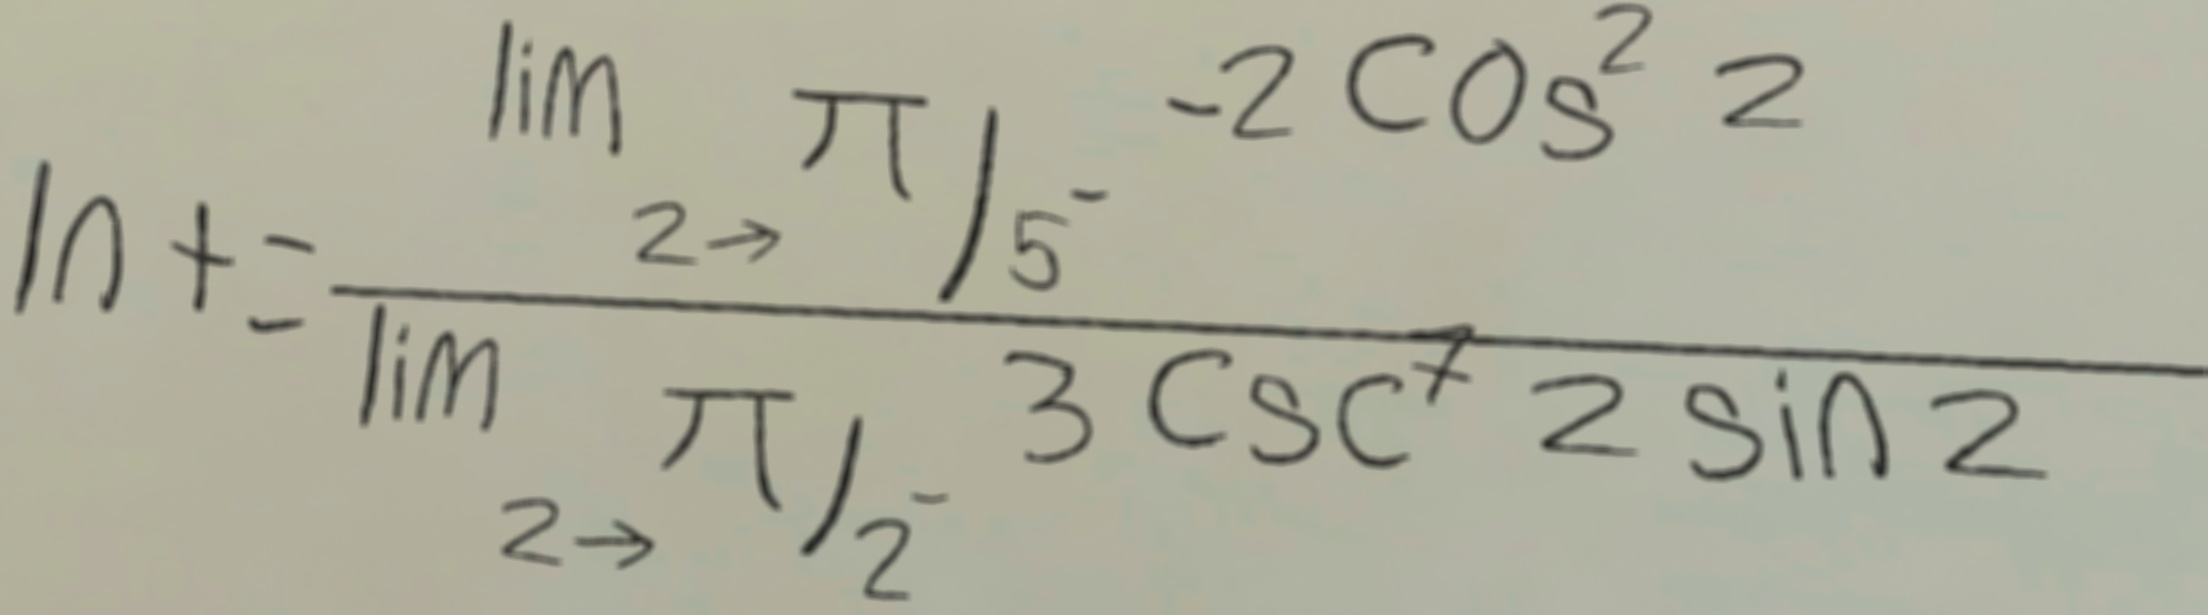 ln t = \frac{\lim_{z \to \pi/5^-} -2 \cos^2 z}{\lim_{z \to \pi/2^-} 3 \csc^7 z \sin z}